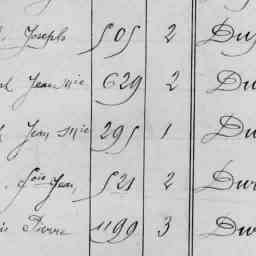 Joseph 505 2 Du
Jean Mie 629 2 Du
Jean Mie 295 1 Du
fois Jean 521 2 Dur
Pierre 1199 3 Dur